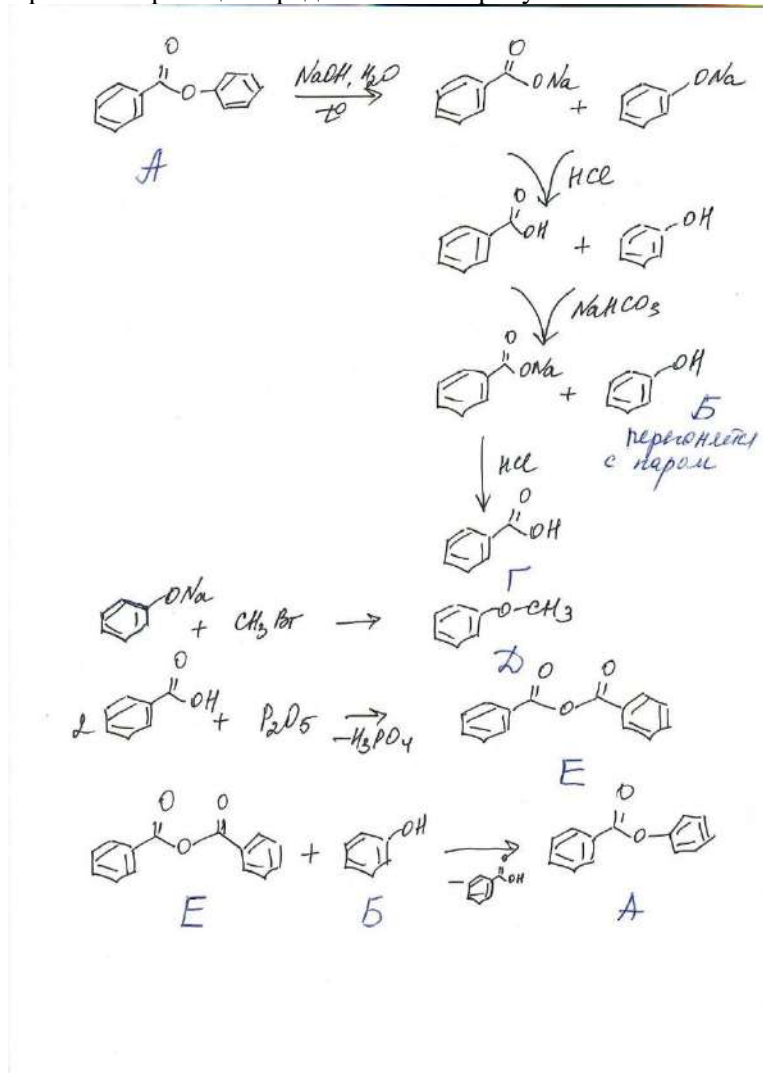 O O
NaOH, H₂O ONa + ONa
O t° 
А
HCl
O
OH + OH
NaHCO₃
O
ONa + OH
Б
перегоняется
HCl с паром
O
OH
Г
ONa + CH₃Br → O-CH₃
Д
O O O
2 OH + P₂O₅ → O
-H₃PO₄
Е
O O O
O + OH → O
- O OH
Е Б А